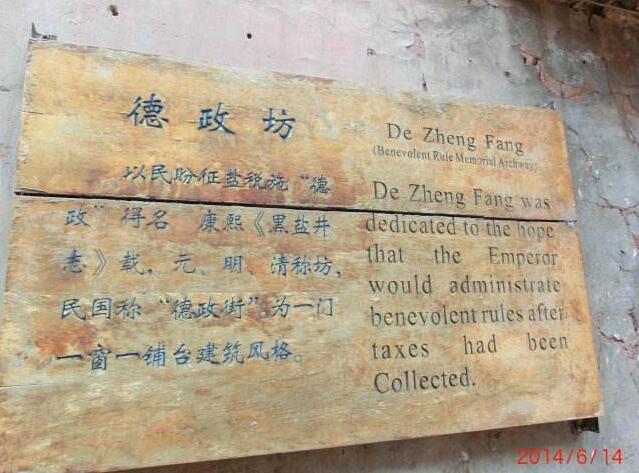 德政坊
以民盼征盐税施“德
政”得名 康熙《黑盐井
志》载,元、明、清称坊,
民国称“德政街”.为一门
一窗一铺台建筑风格。
De Zheng Fang
(Benevolent Rule Memorial Archway)
De Zheng Fang was
dedicated to the hope
that the Emperor
would administrate
benevolent rules after
taxes had been
Collected.
2014/6/14